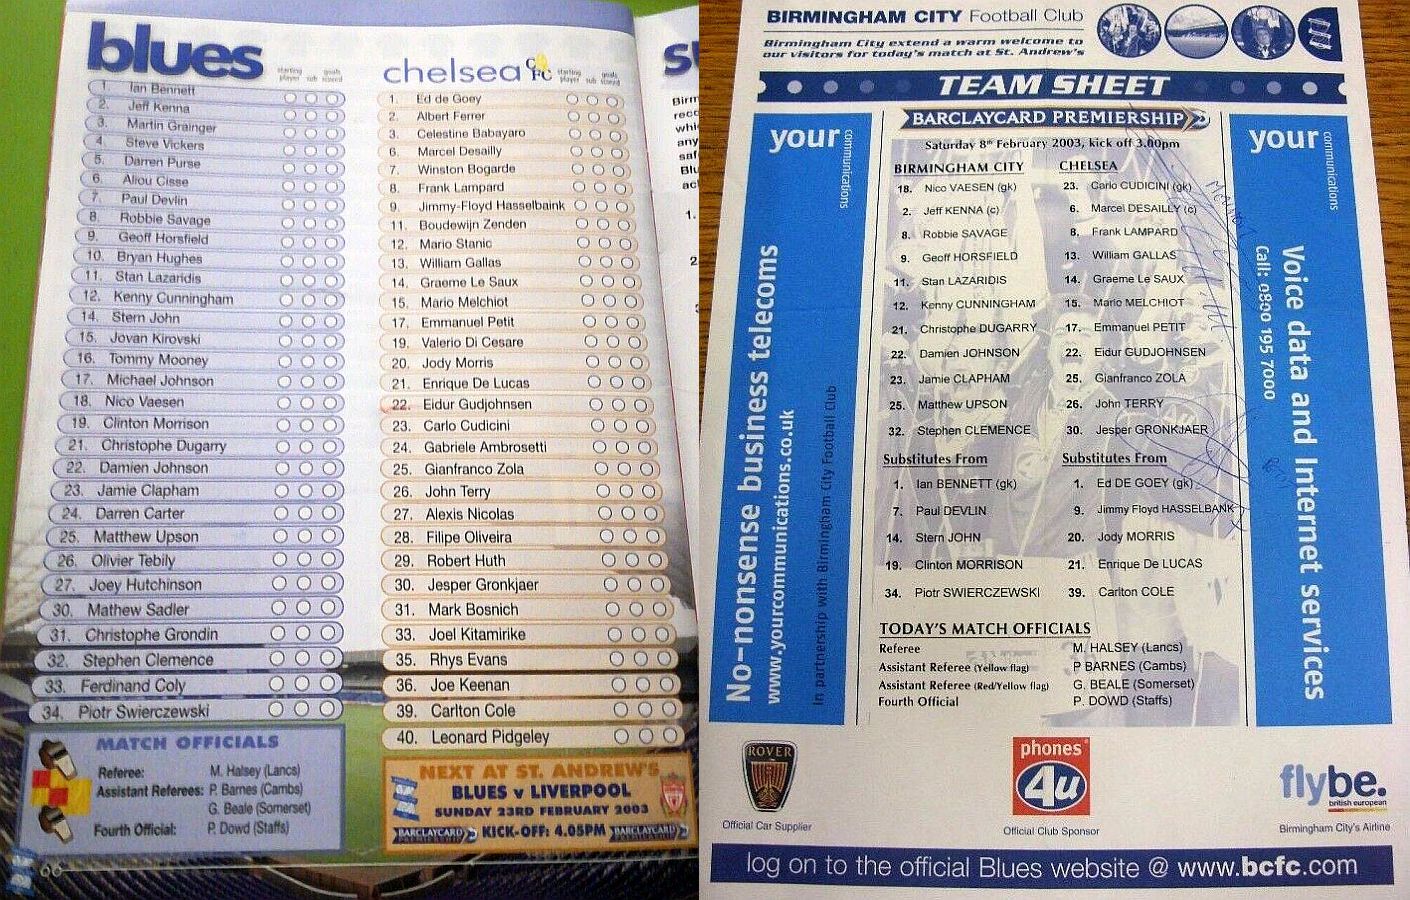 blues
starting player sub goals scored
1. Ian Bennett
2. Jeff Kenna
3. Martin Grainger
4. Steve Vickers
5. Darren Purse
6. Aliou Cisse
7. Paul Devlin
8. Robbie Savage
9. Geoff Horsfield
10. Bryan Hughes
11. Stan Lazaridis
12. Kenny Cunningham
14. Stern John
15. Jovan Kirovski
16. Tommy Mooney
17. Michael Johnson
18. Nico Vaesen
19. Clinton Morrison
21. Christophe Dugarry
22. Damien Johnson
23. Jamie Clapham
24. Darren Carter
25. Matthew Upson
26. Olivier Tebily
27. Joey Hutchinson
30. Mathew Sadler
31. Christophe Grondin
32. Stephen Clemence
33. Ferdinand Coly
34. Piotr Swierczewski
MATCH OFFICIALS
Referee: M. Halsey (Lancs)
Assistant Referees: P. Barnes (Cambs)
G. Beale (Somerset)
Fourth Official: P. Dowd (Staffs)
66
chelsea CFC
starting player sub goals scored
1. Ed de Goey
2. Albert Ferrer
3. Celestine Babayaro
6. Marcel Desailly
7. Winston Bogarde
8. Frank Lampard
9. Jimmy-Floyd Hasselbaink
11. Boudewijn Zenden
12. Mario Stanic
13. William Gallas
14. Graeme Le Saux
15. Mario Melchiot
17. Emmanuel Petit
19. Valerio Di Cesare
20. Jody Morris
21. Enrique De Lucas
22. Eidur Gudjohnsen
23. Carlo Cudicini
24. Gabriele Ambrosetti
25. Gianfranco Zola
26. John Terry
27. Alexis Nicolas
28. Filipe Oliveira
29. Robert Huth
30. Jesper Gronkjaer
31. Mark Bosnich
33. Joel Kitamirike
35. Rhys Evans
36. Joe Keenan
39. Carlton Cole
40. Leonard Pidgeley
NEXT AT ST. ANDREW'S
BLUES v LIVERPOOL
SUNDAY 23RD FEBRUARY 2003
BARCLAYCARD PREMIERSHIP KICK-OFF: 4.05PM BARCLAYCARD PREMIERSHIP
BIRMINGHAM CITY Football Club
Birmingham City extend a warm welcome to
our visitors for today's match at St. Andrew's
TEAM SHEET
BARCLAYCARD PREMIERSHIP
Saturday 8th February 2003, kick off 3.00pm
BIRMINGHAM CITY CHELSEA
18. Nico VAESEN (gk) 23. Carlo CUDICINI (gk)
2. Jeff KENNA (c) 6. Marcel DESAILLY (c)
8. Robbie SAVAGE 8. Frank LAMPARD
9. Geoff HORSFIELD 13. William GALLAS
11. Stan LAZARIDIS 14. Graeme LE SAUX
12. Kenny CUNNINGHAM 15. Mario MELCHIOT
21. Christophe DUGARRY 17. Emmanuel PETIT
22. Damien JOHNSON 22. Eidur GUDJOHNSEN
23. Jamie CLAPHAM 25. Gianfranco ZOLA
25. Matthew UPSON 26. John TERRY
32. Stephen CLEMENCE 30. Jesper GRONKJAER
Substitutes From Substitutes From
1. Ian BENNETT (gk) 1. Ed DE GOEY (gk)
7. Paul DEVLIN 9. Jimmy Floyd HASSELBANK
14. Stern JOHN 20. Jody MORRIS
19. Clinton MORRISON 21. Enrique De LUCAS
34. Piotr SWIERCZEWSKI 39. Carlton COLE
TODAY'S MATCH OFFICIALS
Referee M. HALSEY (Lancs)
Assistant Referee (Yellow flag) P BARNES (Cambs)
Assistant Referee (Red/Yellow flag) G. BEALE (Somerset)
Fourth Official P. DOWD (Staffs)
your communications
No-nonsense business telecoms
www.yourcommunications.co.uk
In partnership with Birmingham City Football Club
your communications
Voice data and Internet services
Call: 0800 195 7000
ROVER
Official Car Supplier
phones 4u
Official Club Sponsor
flybe.
british european
Birmingham City's Airline
log on to the official Blues website @ www.bcfc.com